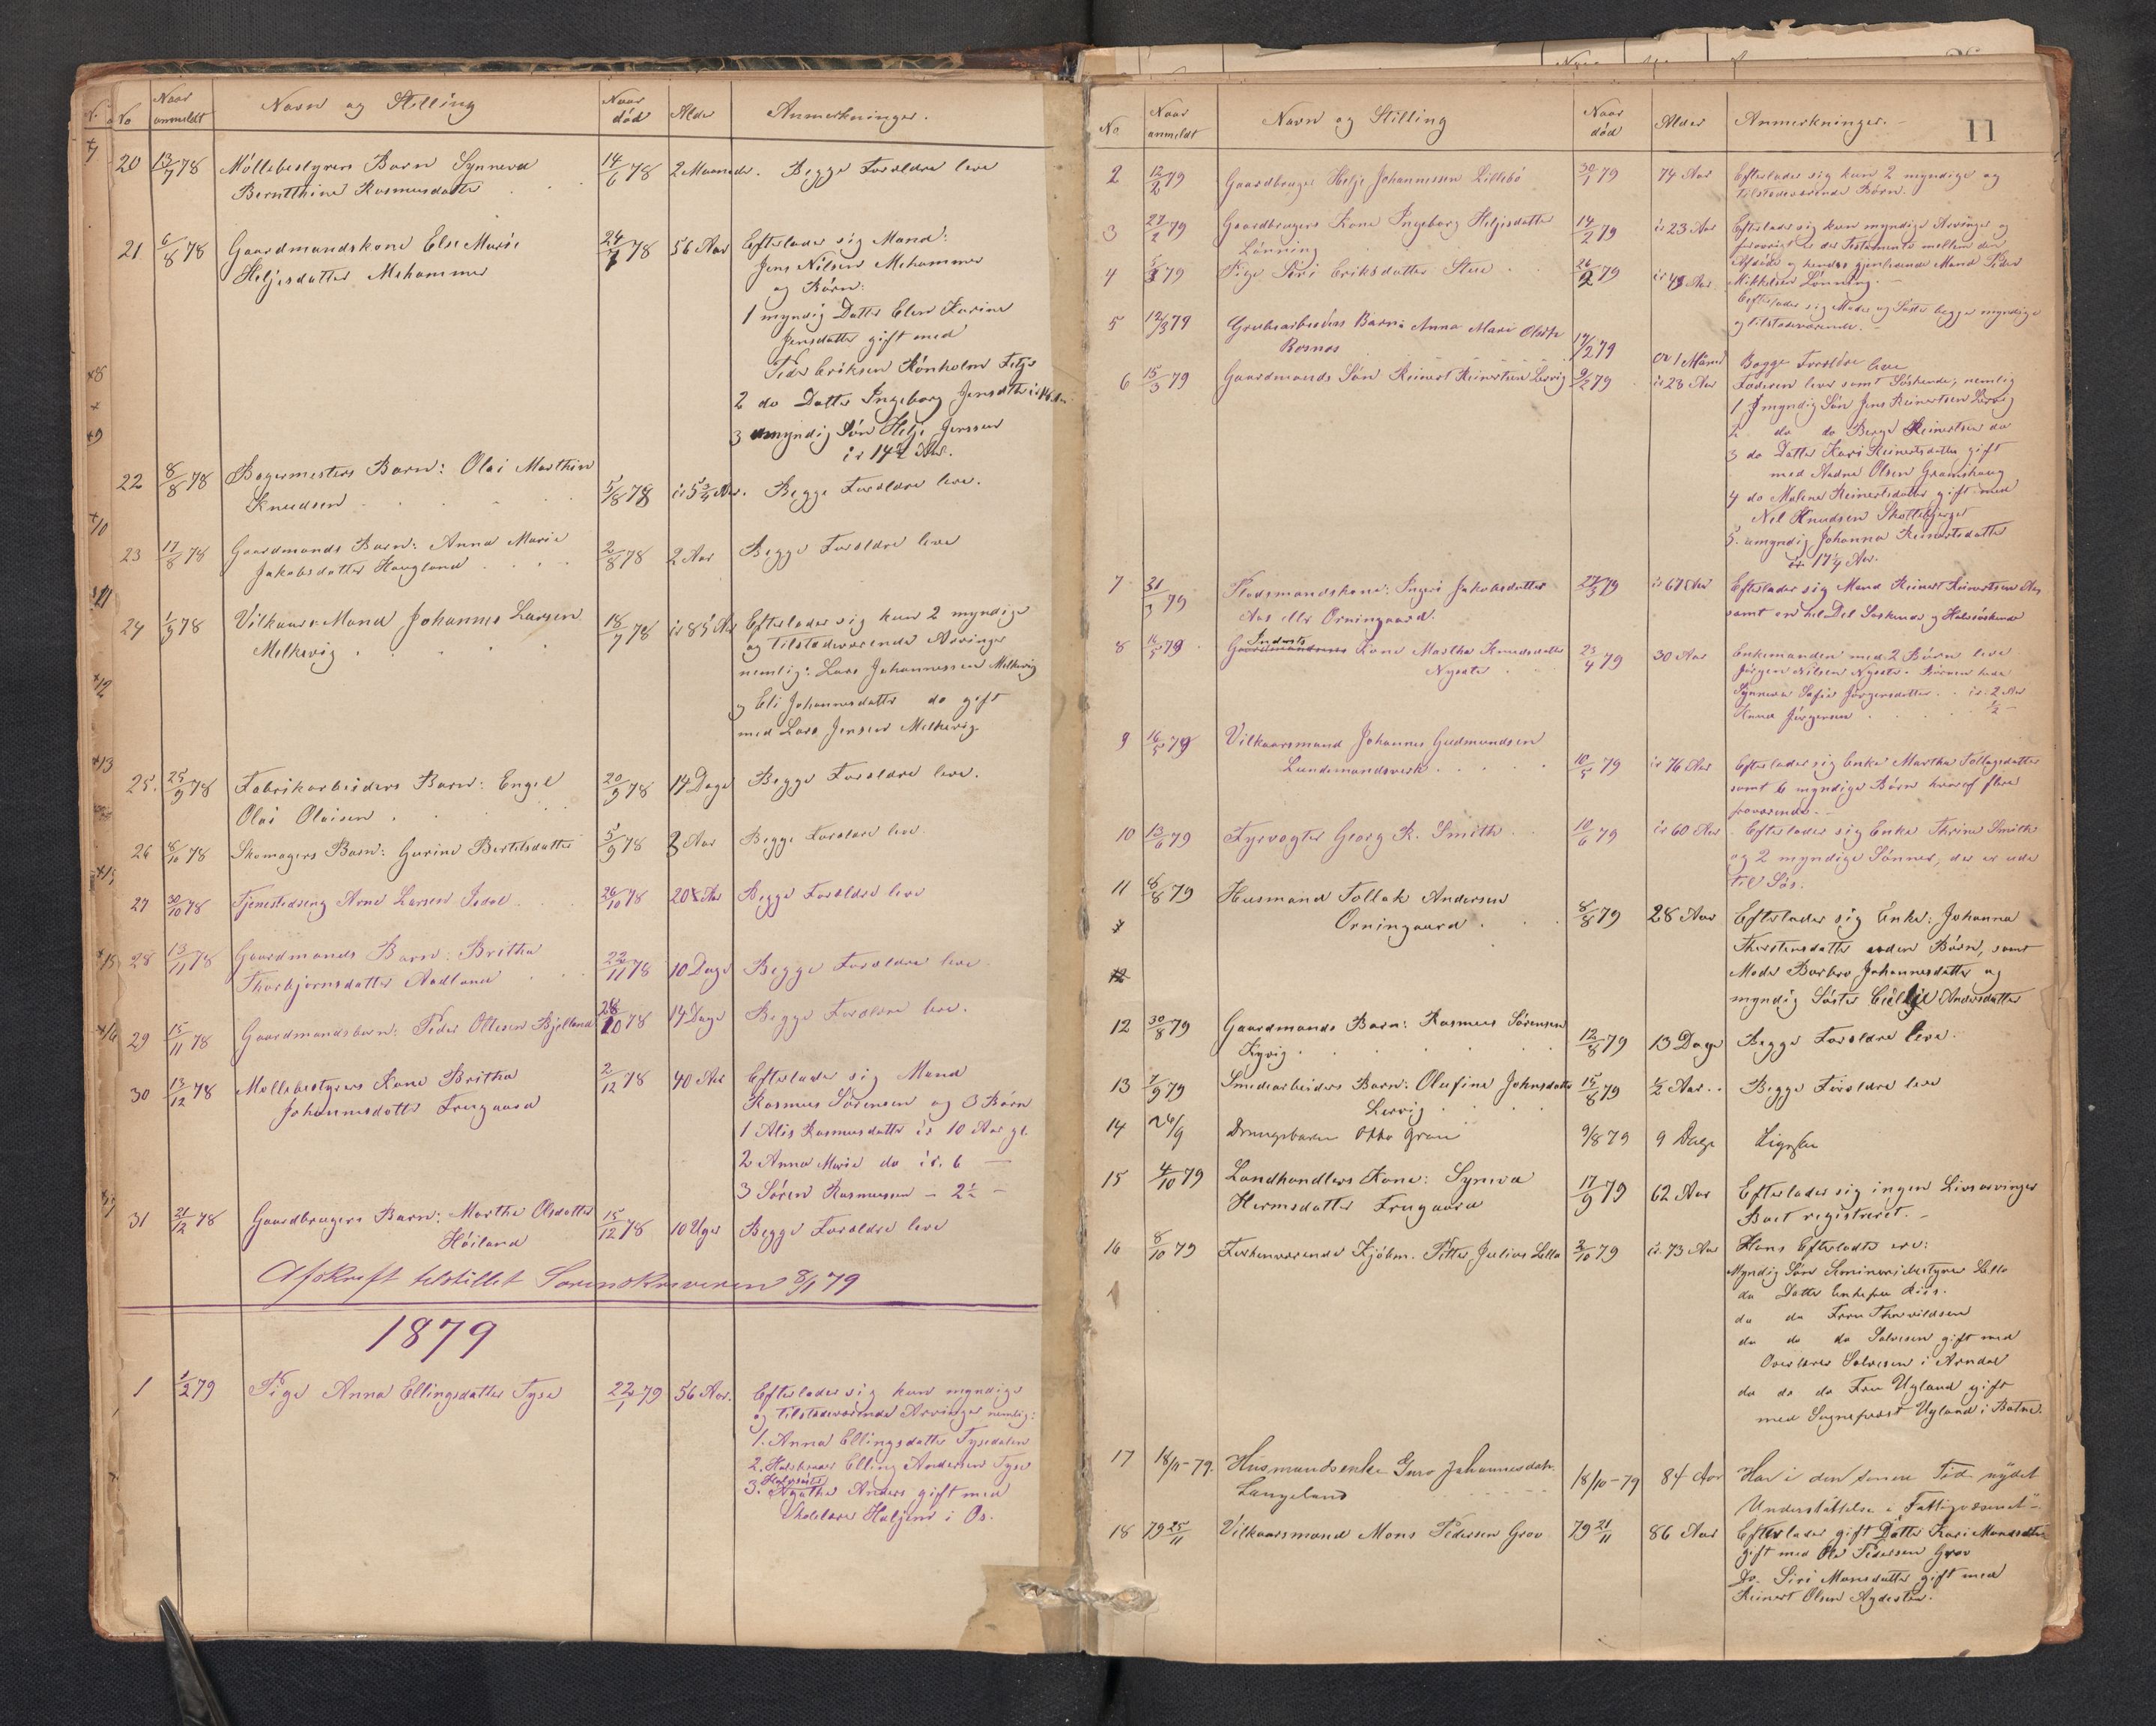 No
Naar anmeldt
Navn og Stilling
Naar død
Alder
Anmerkninger.
20 13/7 78 Möllebestyrers Barn Synneva 14/6 78 2 Maaneder. Begge Forældre leve
Berntthine Rasmusdatter
21 6/8 78 Gaardmandskone Else Marie 24/7 78 56 Aar Efterlader sig Mand:
Heljesdatter Mehammer
Jens Nilsen Mehammer
og Börn:
1 myndig Datter Elen Karine
Jensdatter gift med
Peder Eriksen Rönholm Fitje
2 do Datter Ingeborg Jensdatter
3 umyndig Sön Helje Jenssen
ir 14½ Aar.
22 8/8 78 Bagermesters Barn: Olai Marthin
Knudsen 5/8 78 ir 5¾ Aar. Begge Forældre leve.
23 17/8 78 Gaardmands Barn: Anna Marie
Jakobsdatter Haugland 2/8 78 2 Aar Begge Forældre leve
24 1/9 78 Vilkaars Mand Johannes Larsen 18/7 78 ir 85 Aar Efterlader sig kun 2 myndige
Melkevig
og tilstedeværende Arvinger
nemlig: Lars Johannessen Melkevig
og Eli Johannesdatter do gift
med Lars Jensen Melkevig
25. 25/9 78 Fabrikarbeiders Barn: Engel 20/9 78 14 Dage Begge Forældre leve.
Olai Olaisen
26 8/10 78 Skomagers Barn: Gurine Bertelsdatter 5/9 78 3 Aar Begge Forældre leve.
27 30/10 78 Tjenestedreng Arne Larsen 26/10 78 20 Aar Begge Forældre leve
28 13/11 78 Gaardmands Barn: Britha
Thorbjörnsdatter Aadland 22/11 78 10 Dage Begge Forældre leve.
29 15/11 78 Gaardmandsbarn: Peder Ottesen Bjelland 28/10 78 14 Dage Begge Forældre leve.
30 13/12 78 Möllebestyrers Kone Britha 2/12 78 40 Aar Efterlader sig Mand
Johannesdatter Frugaard
Rasmus Sörensen og 3 Börn
1 Alis Rasmusdatter ir 10 Aar gl.
2 Anna Marie do ir. 6 —
3 Sören Rasmussen — 2½ —
31 21/12 78 Gaardbrugers Barn: Marthe Olsdatter
Höiland 15/12 78 10 Uger Begge Forældre leve
Afskrift tilstillet Sorenskriveren 8/1 79
1879
1 1/2 79 Pige Anna Ellingsdatter Tyse 22/1 79 56 Aar. Efterlader sig kun myndige
og tilstedeværende Arvinger nemlig:
1. Anna Ellingsdatter Tysedalen
2. Halvbroder Elling Andersen Tyse
Halvsöster
3. Agathe Anders gift med
Skolelærer Haljem i Os.
11
No
Naar anmeldt
Navn og Stilling
Naar död
Alder
Anmerkninger.
2 12/2 79 Gaardbruger Helje Johannessen Lillebö 30/1 79 74 Aar Efterlader sig kun 2 myndige og
tilstedeværende Börn.
3 27/2 79 Gaardbrugers Kone Ingeborg Heljesdatter
Lönning 14/2 79 ir 23 Aar Efterlader sig kun myndige Arvinger og
forövrigt er der Testamente mellem den
Afdöde og hendes gjenlevende Mand Peder
Mikkelsen Lönning.
4 79 Pige Siri Eriksdatter Stue 26/2 79 ir 43 Aar
Efterlader sig Moder og Söster begge myndige
og tilstedeværende.
5 12/3 79 Grubearbeiders Barn: Anna Mari Olsdtr
Rosnes 17/2 79 1 Maaned Begge Forældre leve
6 15/3 79 Gaardmands Sön Reinert Reinertsen Lervig 9/2 79 ir 28 Aar Faderen lever samt Söskende, nemlig
1 myndig Sön Jens Reinertsen Lervig
2 do do Berge Reinertsen do
3 do Datter Kari Reinertsdatter gift
med Andre Olsen Gramshaug
4 do Malene Reinertsdatter gift med
Nil Knudsen Skottebjerget
5. umyndig Johanna Reinertsdatter
ir 17¼ Aar.
7 31/3 79 Pladsmandskone: Ingeri Jakobsdatter
Aas eller Orningaard. 27/3 79 ir 67 Aar Efterlader sig Mand Reinert Reinertsen Aas
samt en hel Del Söskende og Halvsöskende
8 14/5 79 Inderste Kone Martha Knudsdatter
Nysæter 23/4 79 30 Aar Enkemanden med 2 Börn leve
Jörgen Nilsen Nysæter. Börnene hede
Synneva Sofie Jörgensdatter ir 2 Aar
Knud Jörgensen ½ —
9 16/5 79 Vilkaarsmand Johannes Gudmundsen
Lundemandsverk 10/5 79 ir 76 Aar Efterlader sig Enke Martha Tollagsdatter
samt 6 myndige Börn hvoraf flere
fraværende.
10 13/6 79 Fyrvogter Georg R. Smith 10/6 79 ir 60 Aar Efterlader sig Enke Thrine Smith
og 2 myndige Sönner, der er ude
til Sös.
11 8/8 79 Husmand Tollak Andersen
Orningaard 8/8 79 28 Aar Efterlader sig Enke: Johanna
Thorstensdatter uden Börn, samt
Moder Barbro Johannesdatter og
myndig Söster Andersdatter
12 30/8 79 Gaardmands Barn: Rasmus Sörensen
Kyvig 12/8 79 13 Dage Begge Forældre leve.
13 1/9 79 Smedearbeiders Barn: Olufine Johnsdatter
Lervig 15/8 79 ½ Aar. Begge Forældre leve
14 26/9 Drengebarn Otto Grau 9/8 79 9 Dage
15 4/10 79 Landhandlers Kone: Syneva
Hermsdatter Frugaard 17/9 79 62 Aar Efterlader sig ingen Livsarvinger
Boet registreret.
16 8/10 79 Forhenværende Kjöbm. Petter Julius Lella 2/10 79 ir. 73 Aar Hans Efterladte ere:
Myndig Sön Seminariebestyrer Lella
do Datter Enkefru Riis.
do do Fru Thorvildsen
do do do Salvesen gift med
Overlærer Salvesen i Arndal
do do do Fru Ugland gift
med Sognepræst Ugland i Botne.
17 18/11-79. Husmandsenke Guro Johannesdatr.
Langeland 18/10-79 84 Aar Har i den senere Tid nydt
Understöttelse af Fattigvæsenet
18 79 25/11 Vilkaarsmand Mons Pedersen Grov 79 21/11 86 Aar Efterlader gift Datter Kari Monsdatter
gift med Ole Pedersen Grov
Do. Siri Monsdatter gift med
Reinert Olsen Agdestein.